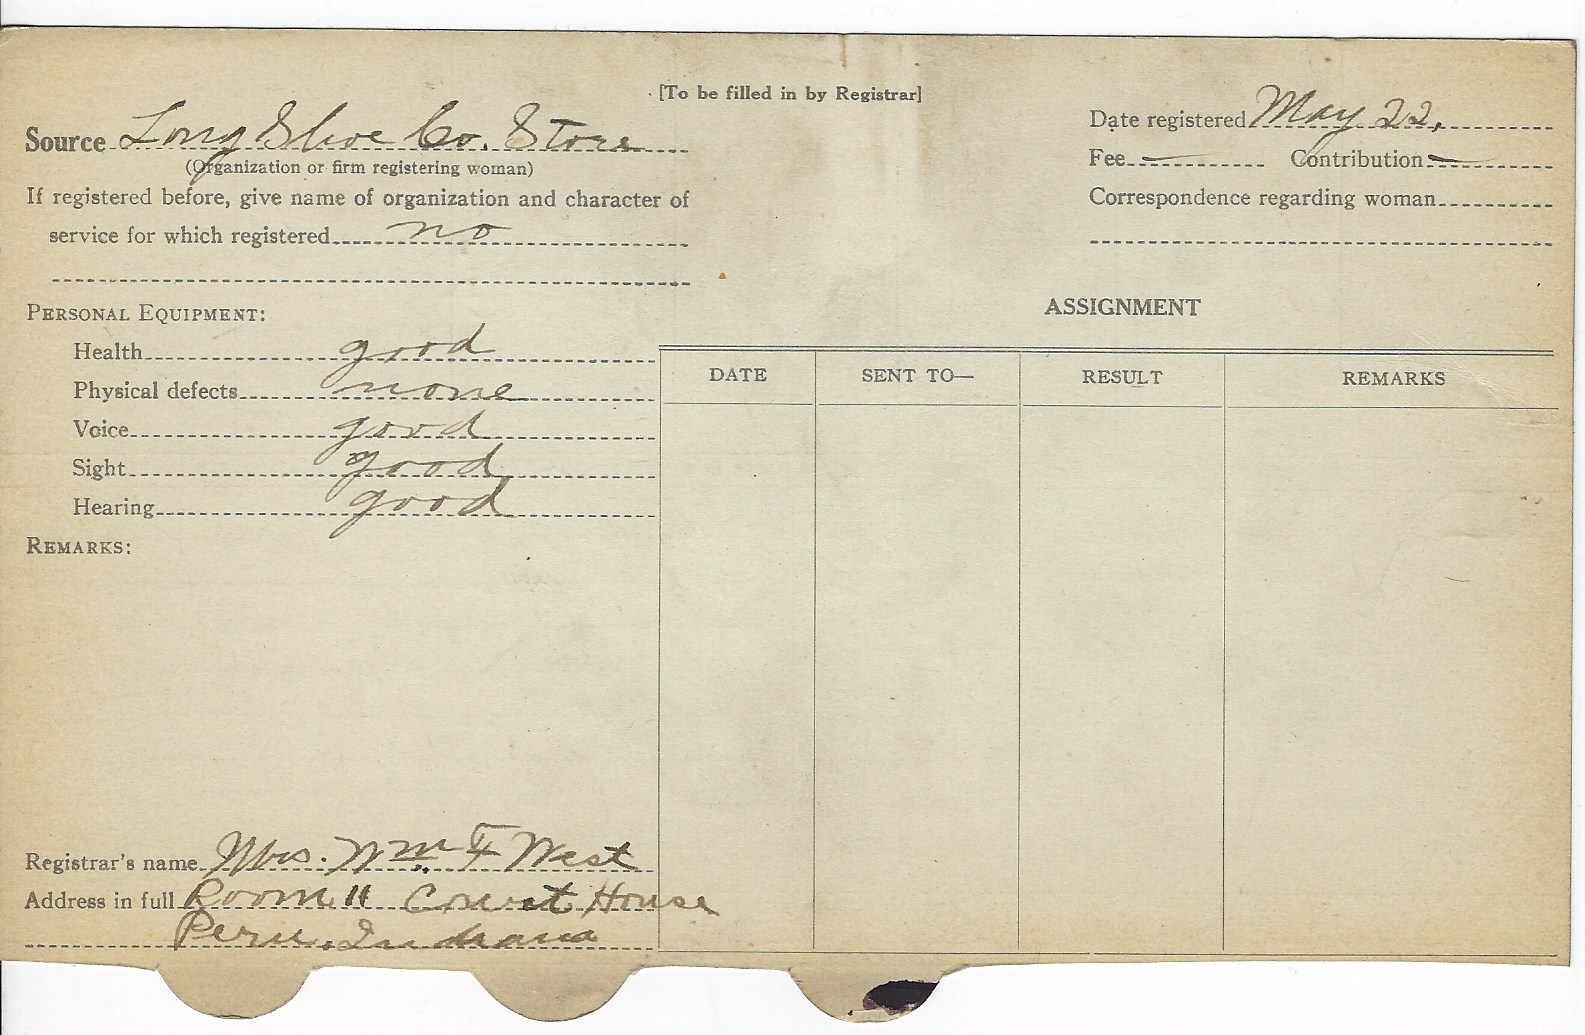 [To be filled in by Registrar]
Source Long Shoe Co. Store
(Organization or firm registering woman)
If registered before, give name of organization and character of
service for which registered no
Date registered May 22,
Fee — Contribution —
Correspondence regarding woman
PERSONAL EQUIPMENT:
Health good
Physical defects none
Voice good
Sight good
Hearing good
REMARKS:
ASSIGNMENT
DATE SENT TO— RESULT REMARKS
Registrar's name Mrs. Wm F West
Address in full Room 11 Court House
Peru, Indiana